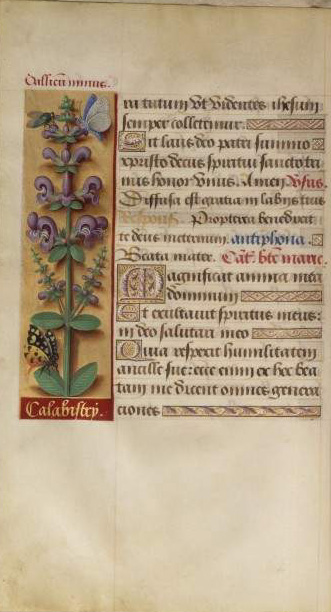 Gallicum minus.
ra tutum Ut videntes ihesum
semper colletemur.
Sit laus deo patri summo
xpisto decus spiritui sancto tri
nus honor vnus. Amen. Vsus.
Diffusa est gratia in labijs tuis
Respons. Propterea benedixit
te deus in eternum. antiphona.
Beata mater. Cāt. bte marie.
Magnificat anima mea
dominum
Et exultauit spiritus meus:
in deo salutari meo
Quia respexit humilitatem
ancille sue: ecce enim ex hoc bea
tam me dicent omnes genera
ciones
Calabistry.